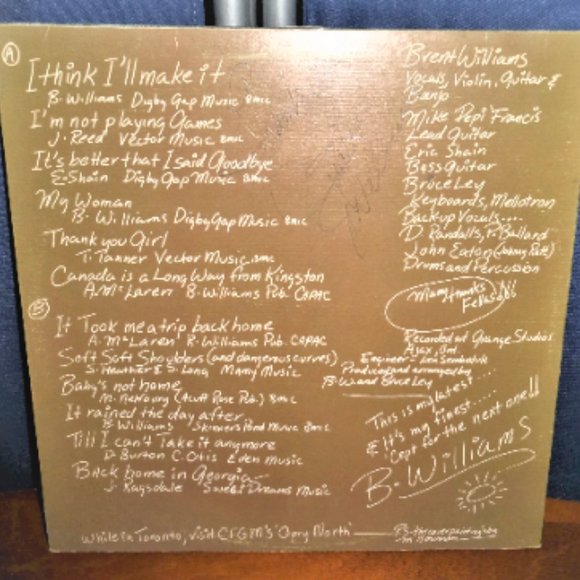 A
I think I'll make it
B. Williams Digby Gap Music BMIC
I'm not playing Games
J. Reed Vector Music BMIC
It's better that I said Goodbye
E. Shain Digby Gap Music BMIC
My Woman
B. Williams Digby Gap Music BMIC
Thank you Girl
T. Tanner Vector Music BMIC
Canada is a Long Way from Kingston
A. McLaren B. Williams Pub. CAPAC
B
It Took me a trip back home
A. McLaren B. Williams Pub. CAPAC
Soft Soft Shoulders (and dangerous curves)
S. & S. Long Many Music
Baby's not home
M. (Acuff Rose Pub.) BMIC
It rained the day after
B. Williams Skinners Pond Music BMIC
Till I can't Take it anymore
D. Burton C. Otis Eden Music
Back home in Georgia
J. Ragsdale Sweet Dreams Music
While in Toronto, visit CFGM's 'Opry North'
Brent Williams
Vocals, Violin, Guitar &
Banjo
Mike 'Pepi' Francis
Lead Guitar
Eric Shain
Bass Guitar
Bruce Ley
Keyboards, Mellotron
Back up Vocals....
D. Randalls, P. Ballard
John Eaton (Johnny Pate)
Drums and Percussion
Many thanks
Fellas
Recorded at Grange Studios
Ajax, Ont.
Engineer - Len
Produced and arranged by
B.W. and Bruce Ley
This is my latest....
& It's my finest.....
'Cept for the next one!!
B. Williams